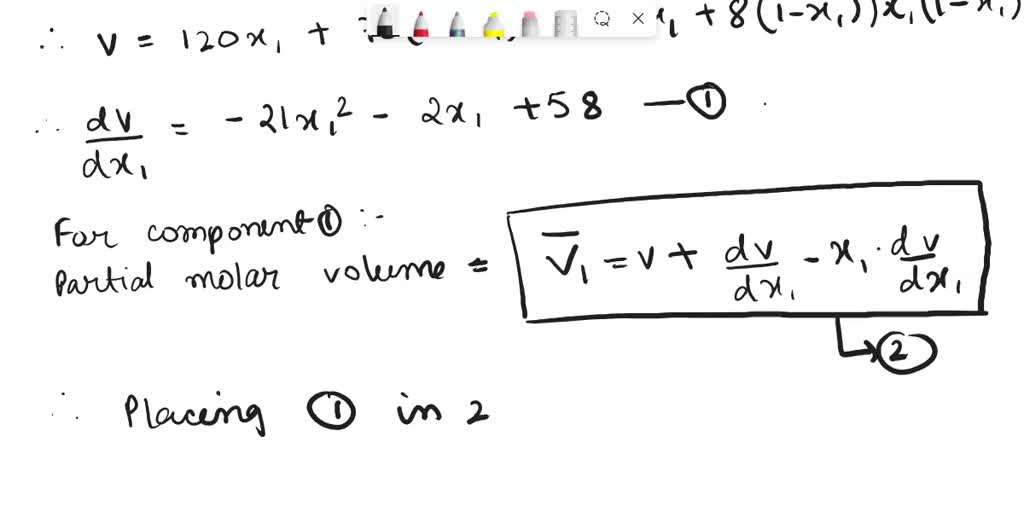 ∴ v = 120x₁ + x₁ + 8(1-x₁))x₁(1-x₁)
∴ dv/dx₁ = -21x₁² - 2x₁ + 58 — ①
For component ① :-
Partial molar volume = V̄₁ = v + dv/dx₁ - x₁ · dv/dx₁
→ ②
∴ Placing ① in 2